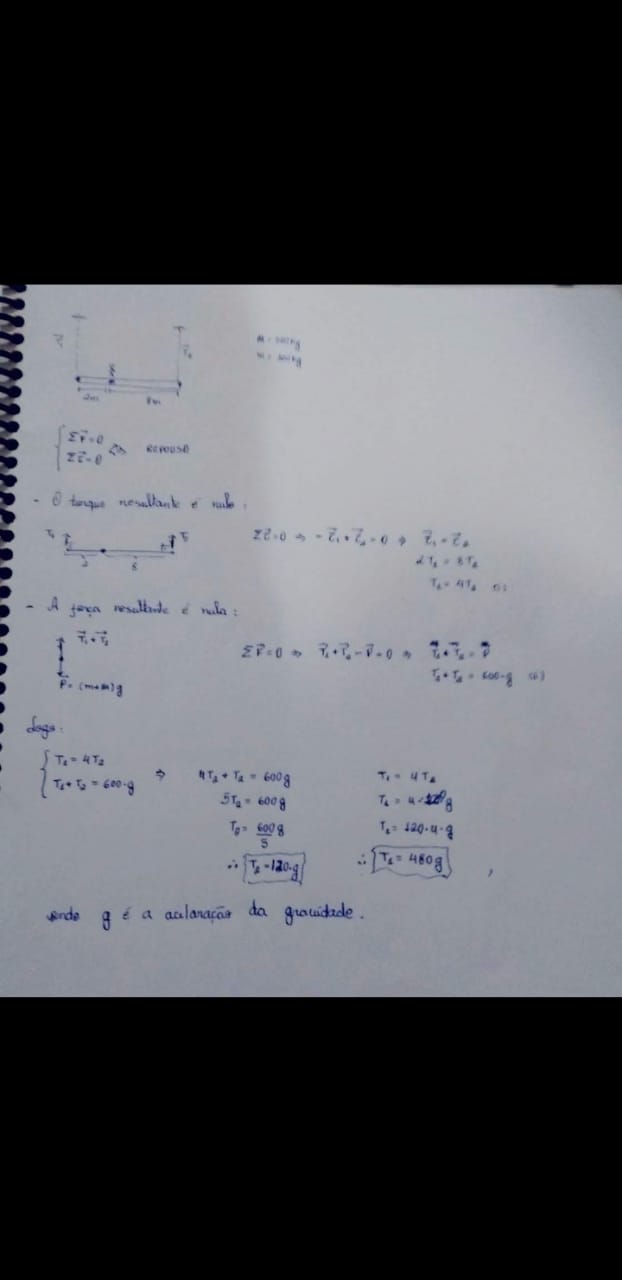 2m 8m
ΣF⃗=0
Στ⃗=0 ⇔ REPOUSO
- O torque resultante é nulo:
Στ⃗=0 ⇒ -τ⃗₁+τ⃗₂=0 ⇒ τ⃗₁=τ⃗₂
2T₁ = 8T₂
T₁ = 4T₂
- A força resultante é nula:
T⃗₁+T⃗₂
ΣF⃗=0 ⇒ T⃗₁+T⃗₂-P⃗=0 ⇒ T⃗₁+T⃗₂ = P⃗
T₁+T₂ = 600·g
P⃗=(m+M)g
Logo:
T₁ = 4T₂
T₁+T₂ = 600·g
⇒ 4T₂ + T₂ = 600g
5T₂ = 600g
T₂ = 600g/5
∴ T₂ = 120·g
T₁ = 4T₂
T₁ = 4·120g
T₁ = 120·4·g
∴ T₁ = 480g ,
g é a aceleração da gravidade.